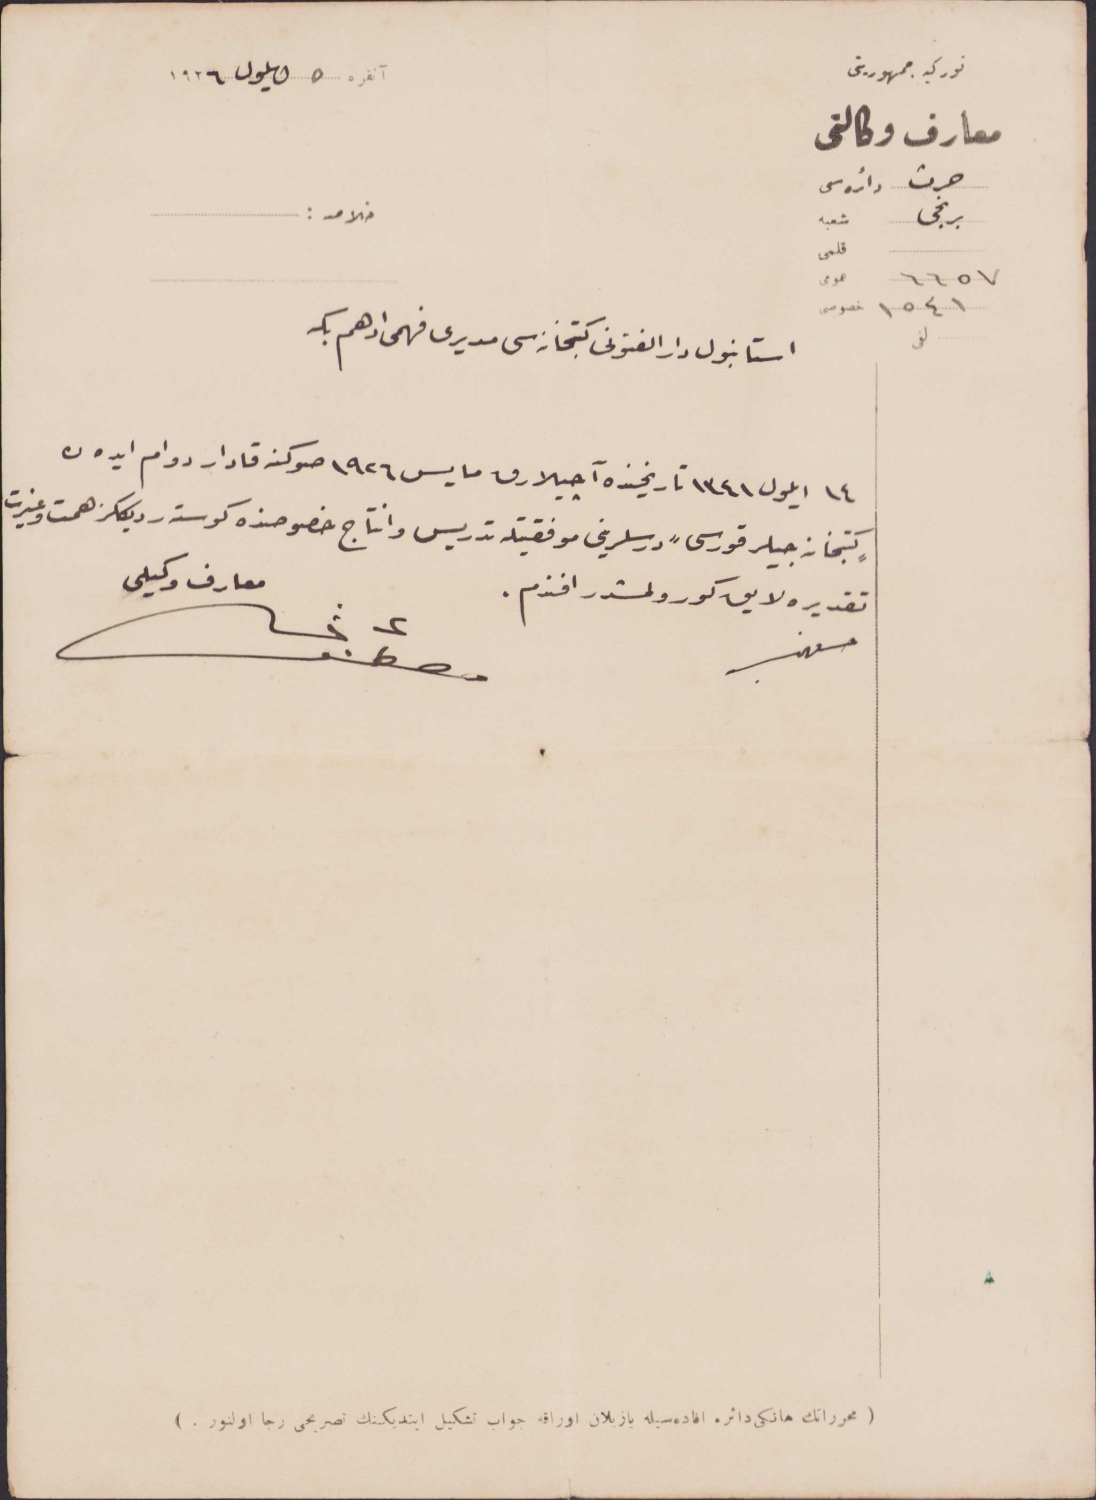 توركیه جمهوریتی
معارف وكالتی
آنقره ٥ ایلول ١٩٢٦
حرث دائره‌سی
برنجی شعبه
قلمی
عمومی ٦٦٥٧
خصوصی ١٥٤١
لف
خلاصه :
استانبول دار الفنونی كتبخانه‌سی مدیری فهمی ادهم بكه
١٤ ایلول ١٣٤١ تاریخنده آچیلارق مایس ١٩٢٦ صوكنه قادار دوام ایده‌ن
"كتبخانه‌جیلر قورسی" درسلرینی موفقیتله تدریس و انتاج خصوصنده كوستردیككز همت و غیرت
تقدیره لایق كورولمشدر افندم .
معارف وكیلی
مصطفی نجاتی
( محرراتك هانكی دائره افاده‌سیله یازیلان اوراقه جواب تشكیل ایتدیكینك تصریحی رجا اولنور . )